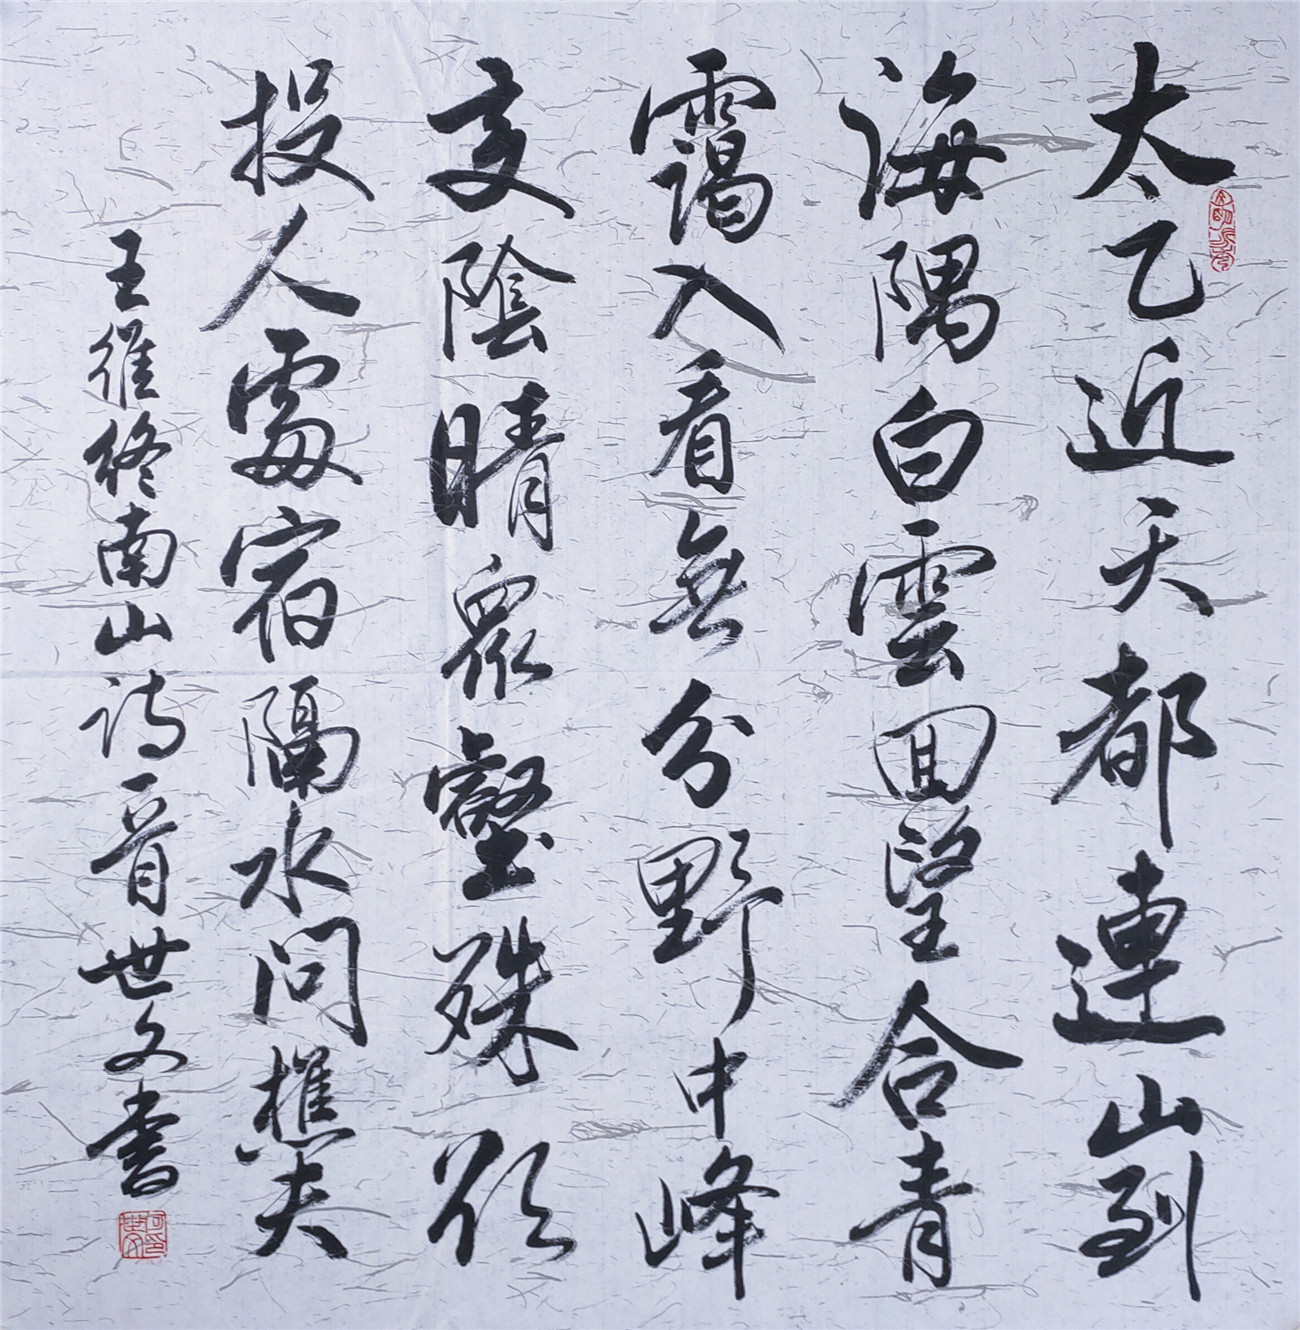 太乙近天都連山到
海隅白雲回望合青
靄入看無分野中峰
变陰晴衆壑殊欲
投人處宿隔水問樵夫
王維終南山詩一首世文書